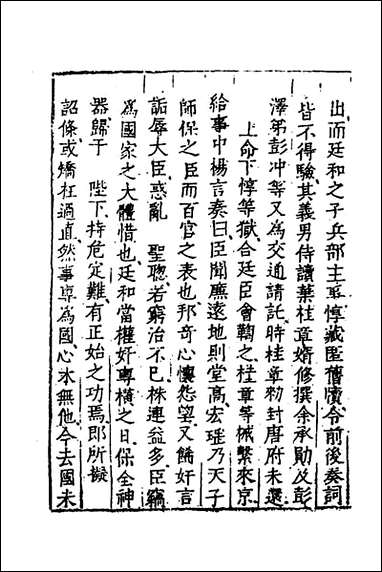 出而廷和之子兵部主事惇藏匿舊牘令前後奏詞
皆不得驗其義男侍讀葉桂章婿修撰余承勛及彭
澤弟彭冲等又為交通請託時桂章勑封唐府未還
上命下惇等獄合廷臣會鞫之桂章等械繫來京
給事中楊言奏曰臣聞廉遠地則堂高宏瑤乃天子
師保之臣而百官之表也邦奇心懷怨望又飾奸言
詬辱大臣惑亂 聖聰若窮治不已株連益多臣竊
為國家之大體惜也廷和當權奸專橫之日保全神
器歸于 陛下持危定難有正始之功焉即所擬
詔條或矯枉過直然事專為國心本無他今去國未